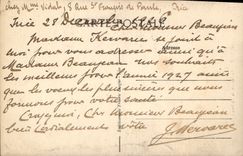 chez Mme Vidal, 3 Rue St François de Paule, Nice
Nice 28 Dec
CARTE POSTALE
Cher Monsieur Beaujean
Madame Kervarec se joint à
Adresse
moi pour vous adresser ainsi qu'à
Madame Beaujean nos souhaits
les meilleurs pour l'année 1927 ainsi
que les voeux les plus sincères que nous
formons pour votre santé
Croyez moi, Cher Monsieur Beaujean
bien Cordialement vôtre
J Kervarec